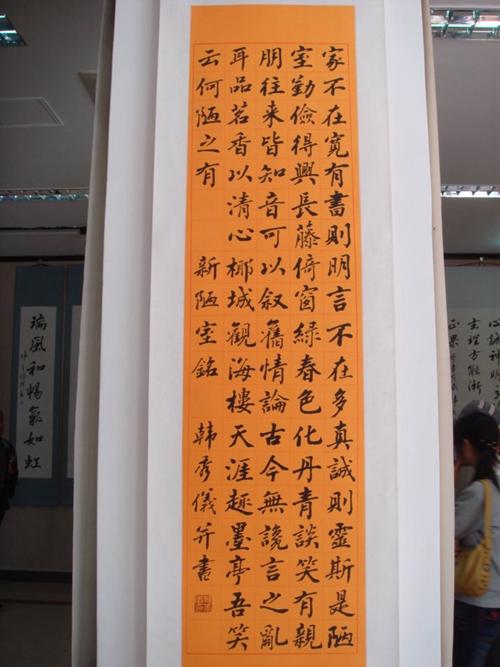 家不在寬有書則明言不在多真誠則靈斯是陋
室勤儉得興長藤倚窗綠春色化丹青談笑有親
朋往来皆知音可以叙舊情論古今無讒言之亂
耳品茗香以清心椰城觀海樓天涯趣墨亭吾笑
云何陋之有 新陋室銘 韩秀儀并書
瑞風和暢氣如虹
心誠神明
理方能渐
正果